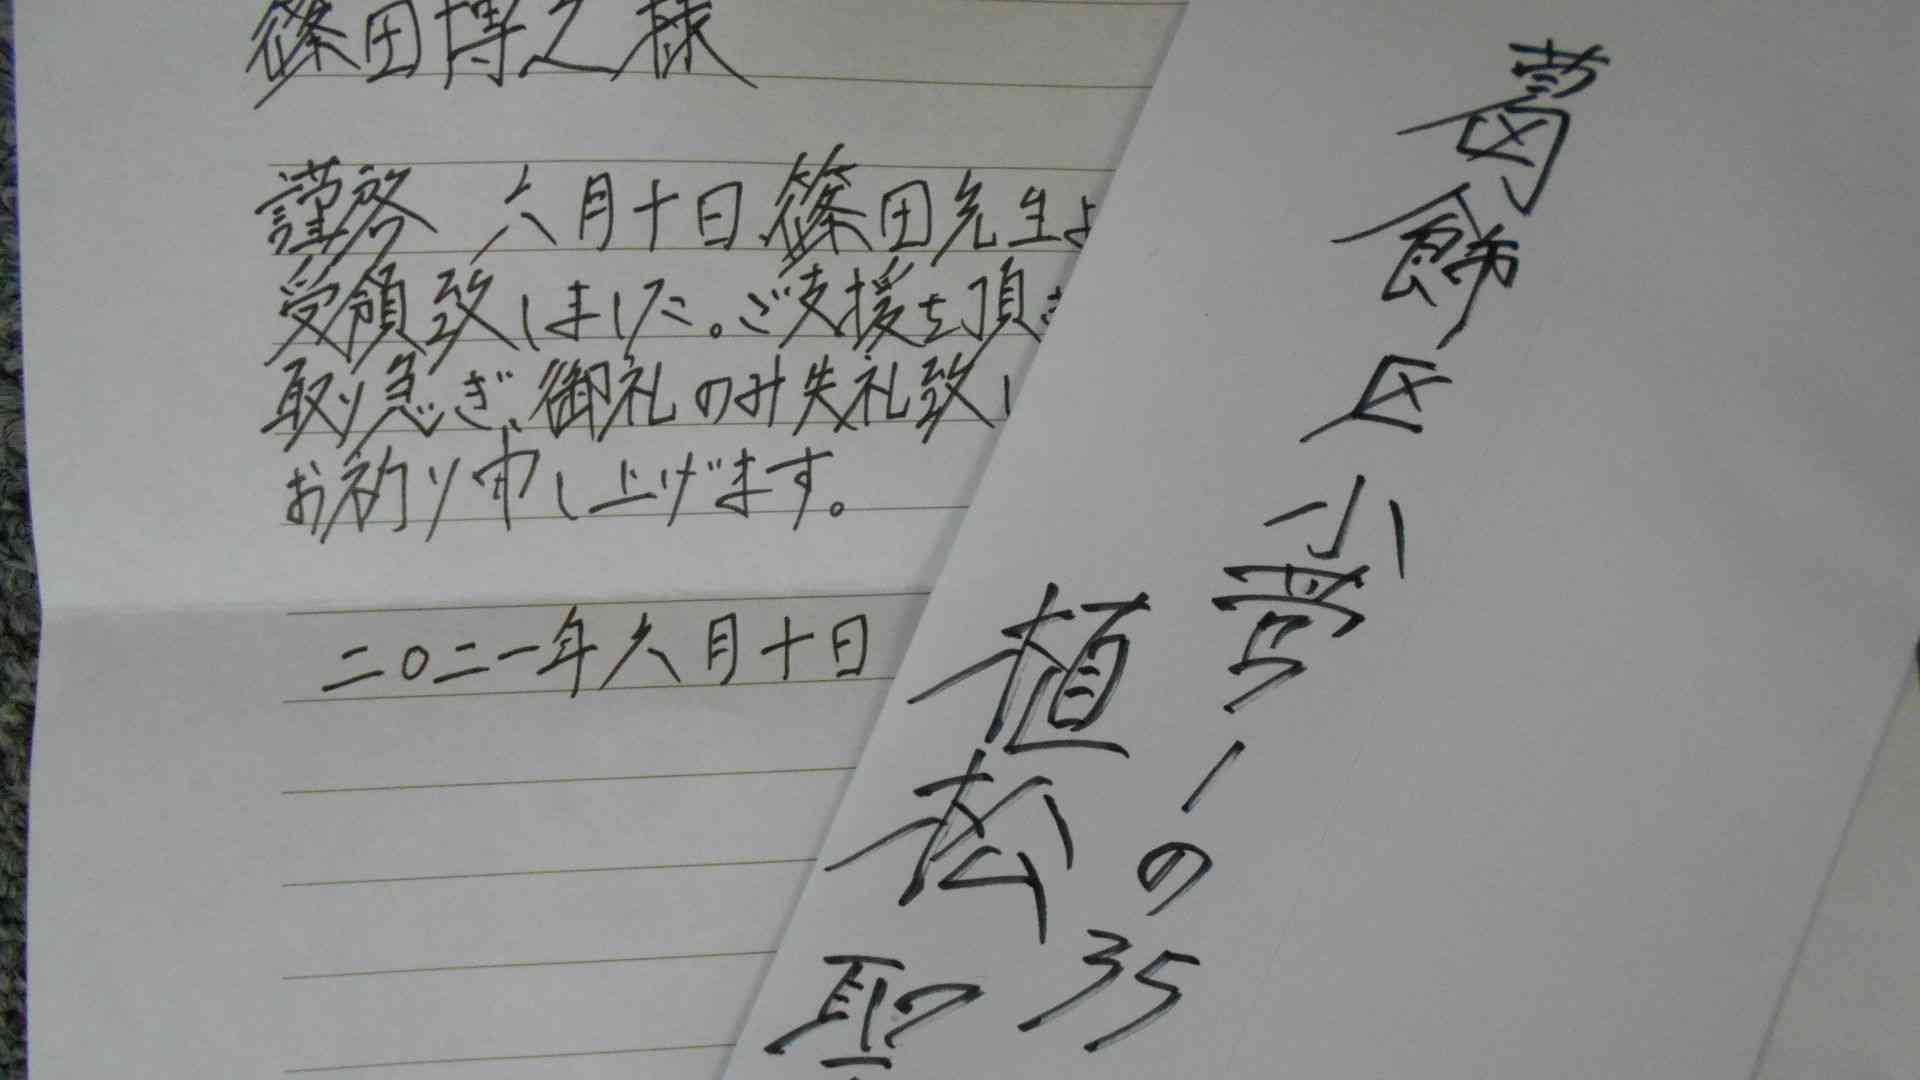 篠田博之様
謹啓 六月十日、篠田先生よ
受領致しました。ご支援を頂き
取り急ぎ、御礼のみ失礼致し
お祈り申し上げます。
二〇二一年六月十日
葛飾区小菅1の35
植松聖